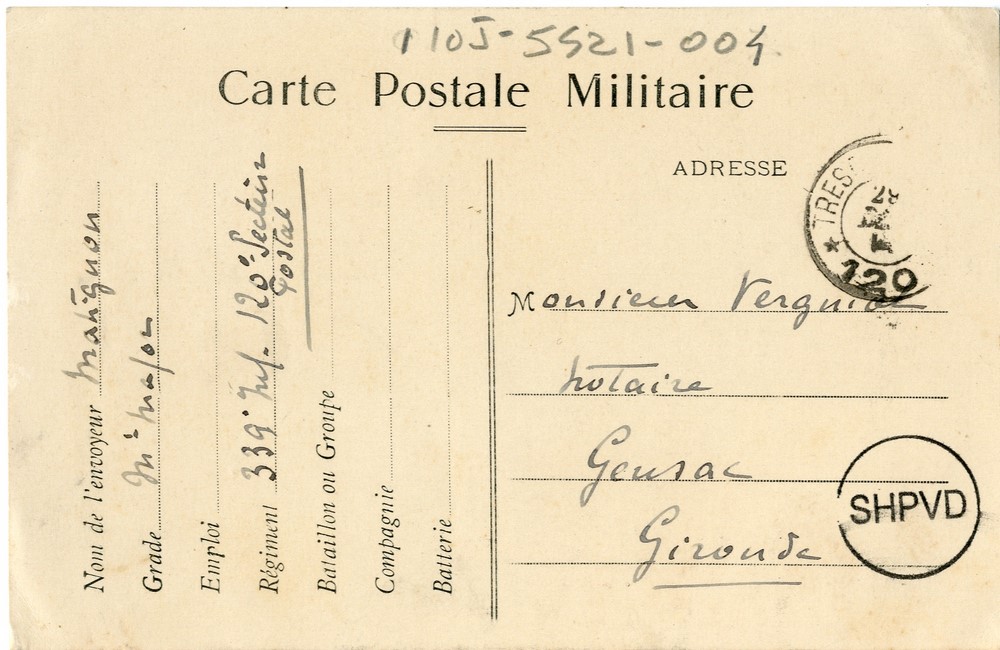 110J-5521-004.
Carte Postale Militaire
ADRESSE
TRES
120
Monsieur Vergniol
Notaire
Gensac
Gironde
SHPVD
Nom de l'envoyeur Matignon
Grade Md Major
Emploi
Régiment 339e Inf. 120e Secteur
Postal
Bataillon ou Groupe
Compagnie
Batterie